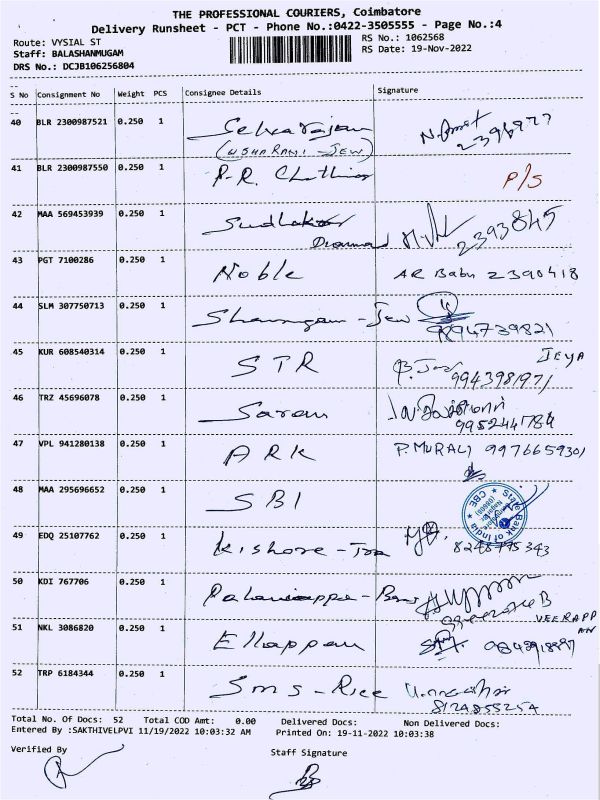 THE PROFESSIONAL COURIERS, Coimbatore
Delivery Runsheet - PCT - Phone No.:0422-3505555 - Page No.:4
Route: VYSIAL ST
RS No.: 1062568
Staff: BALASHANMUGAM
RS Date: 19-Nov-2022
DRS No.: DCJB106256804
S No Consignment No Weight PCS Consignee Details Signature
40 BLR 2300987521 0.250 1 Selvarajan
(USHARANI - JEW)
41 BLR 2300987550 0.250 1 P.R. P/S
42 MAA 569453939 0.250 1 2393845
43 PGT 7100286 0.250 1 Noble AR Babu 2390418
44 SLM 307750713 0.250 1 Shanmugam - Jew 9894739821
45 KUR 608540314 0.250 1 STR JEYA
9943981971
46 TRZ 45696078 0.250 1 Saran
9952441784
47 VPL 941280138 0.250 1 ARK P. MURALI 9976659301
48 MAA 295696652 0.250 1 SBI State Bank of India CBE
49 EDQ 25107762 0.250 1 Kishore - 8248775343
50 KDI 767706 0.250 1 Palaniappa -
VEERAPPAN
51 NKL 3086820 0.250 1 Ellappan
52 TRP 6184344 0.250 1 Sms - Rice
Total No. Of Docs: 52 Total COD Amt: 0.00 Delivered Docs: Non Delivered Docs:
Entered By :SAKTHIVELPVI 11/19/2022 10:03:32 AM Printed On: 19-11-2022 10:03:38
Verified By
Staff Signature